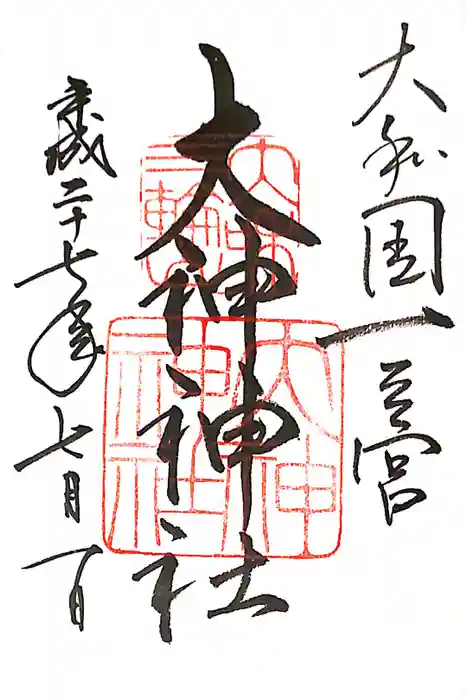 大和国一之宮
大神神社
平成二十七年七月一日
大神
神社